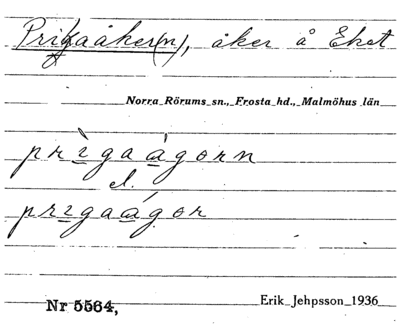 Prigaåker(n), åker å Eket
Norra Rörums sn., Frosta hd., Malmöhus län
prìgaágorn
el.
prigaágor
Nr 5564,
Erik Jehpsson 1936